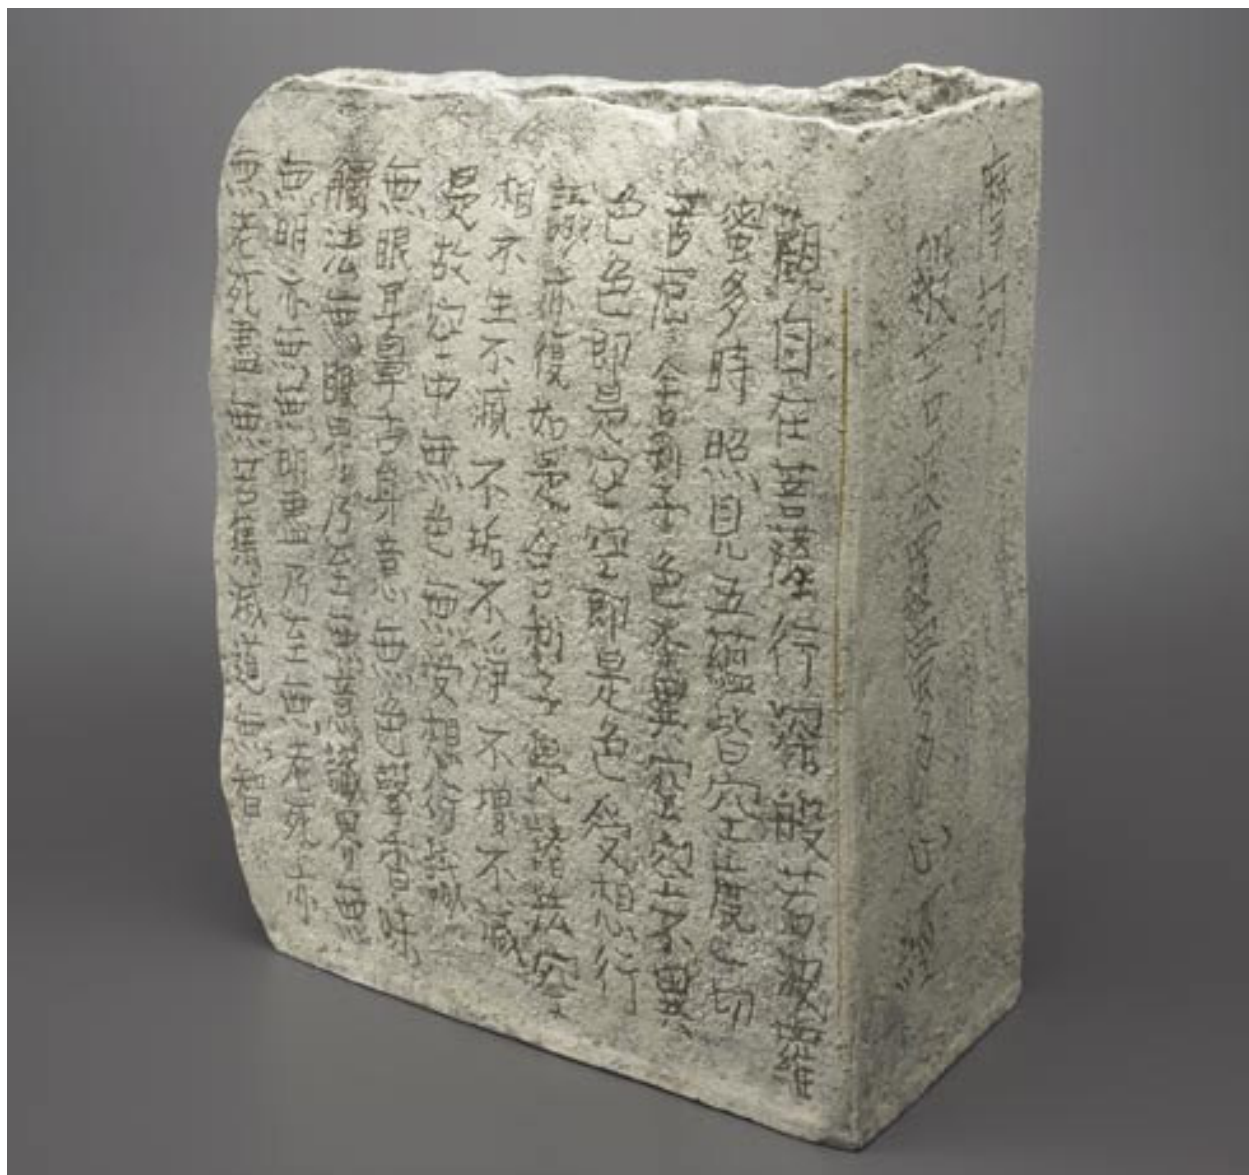 摩訶
般若波羅蜜多心經
觀自在菩薩行深般若波羅
蜜多時照見五蘊皆空度一切
苦厄舍利子色不異空空不異
色色即是空空即是色受想行
識亦復如是舍利子是諸法空
相不生不滅不垢不淨不增不減
是故空中無色無受想行識
無眼耳鼻舌身意無色聲香味
觸法無眼界乃至無意識界無
無明亦無無明盡乃至無老死亦
無老死盡無苦集滅道無智